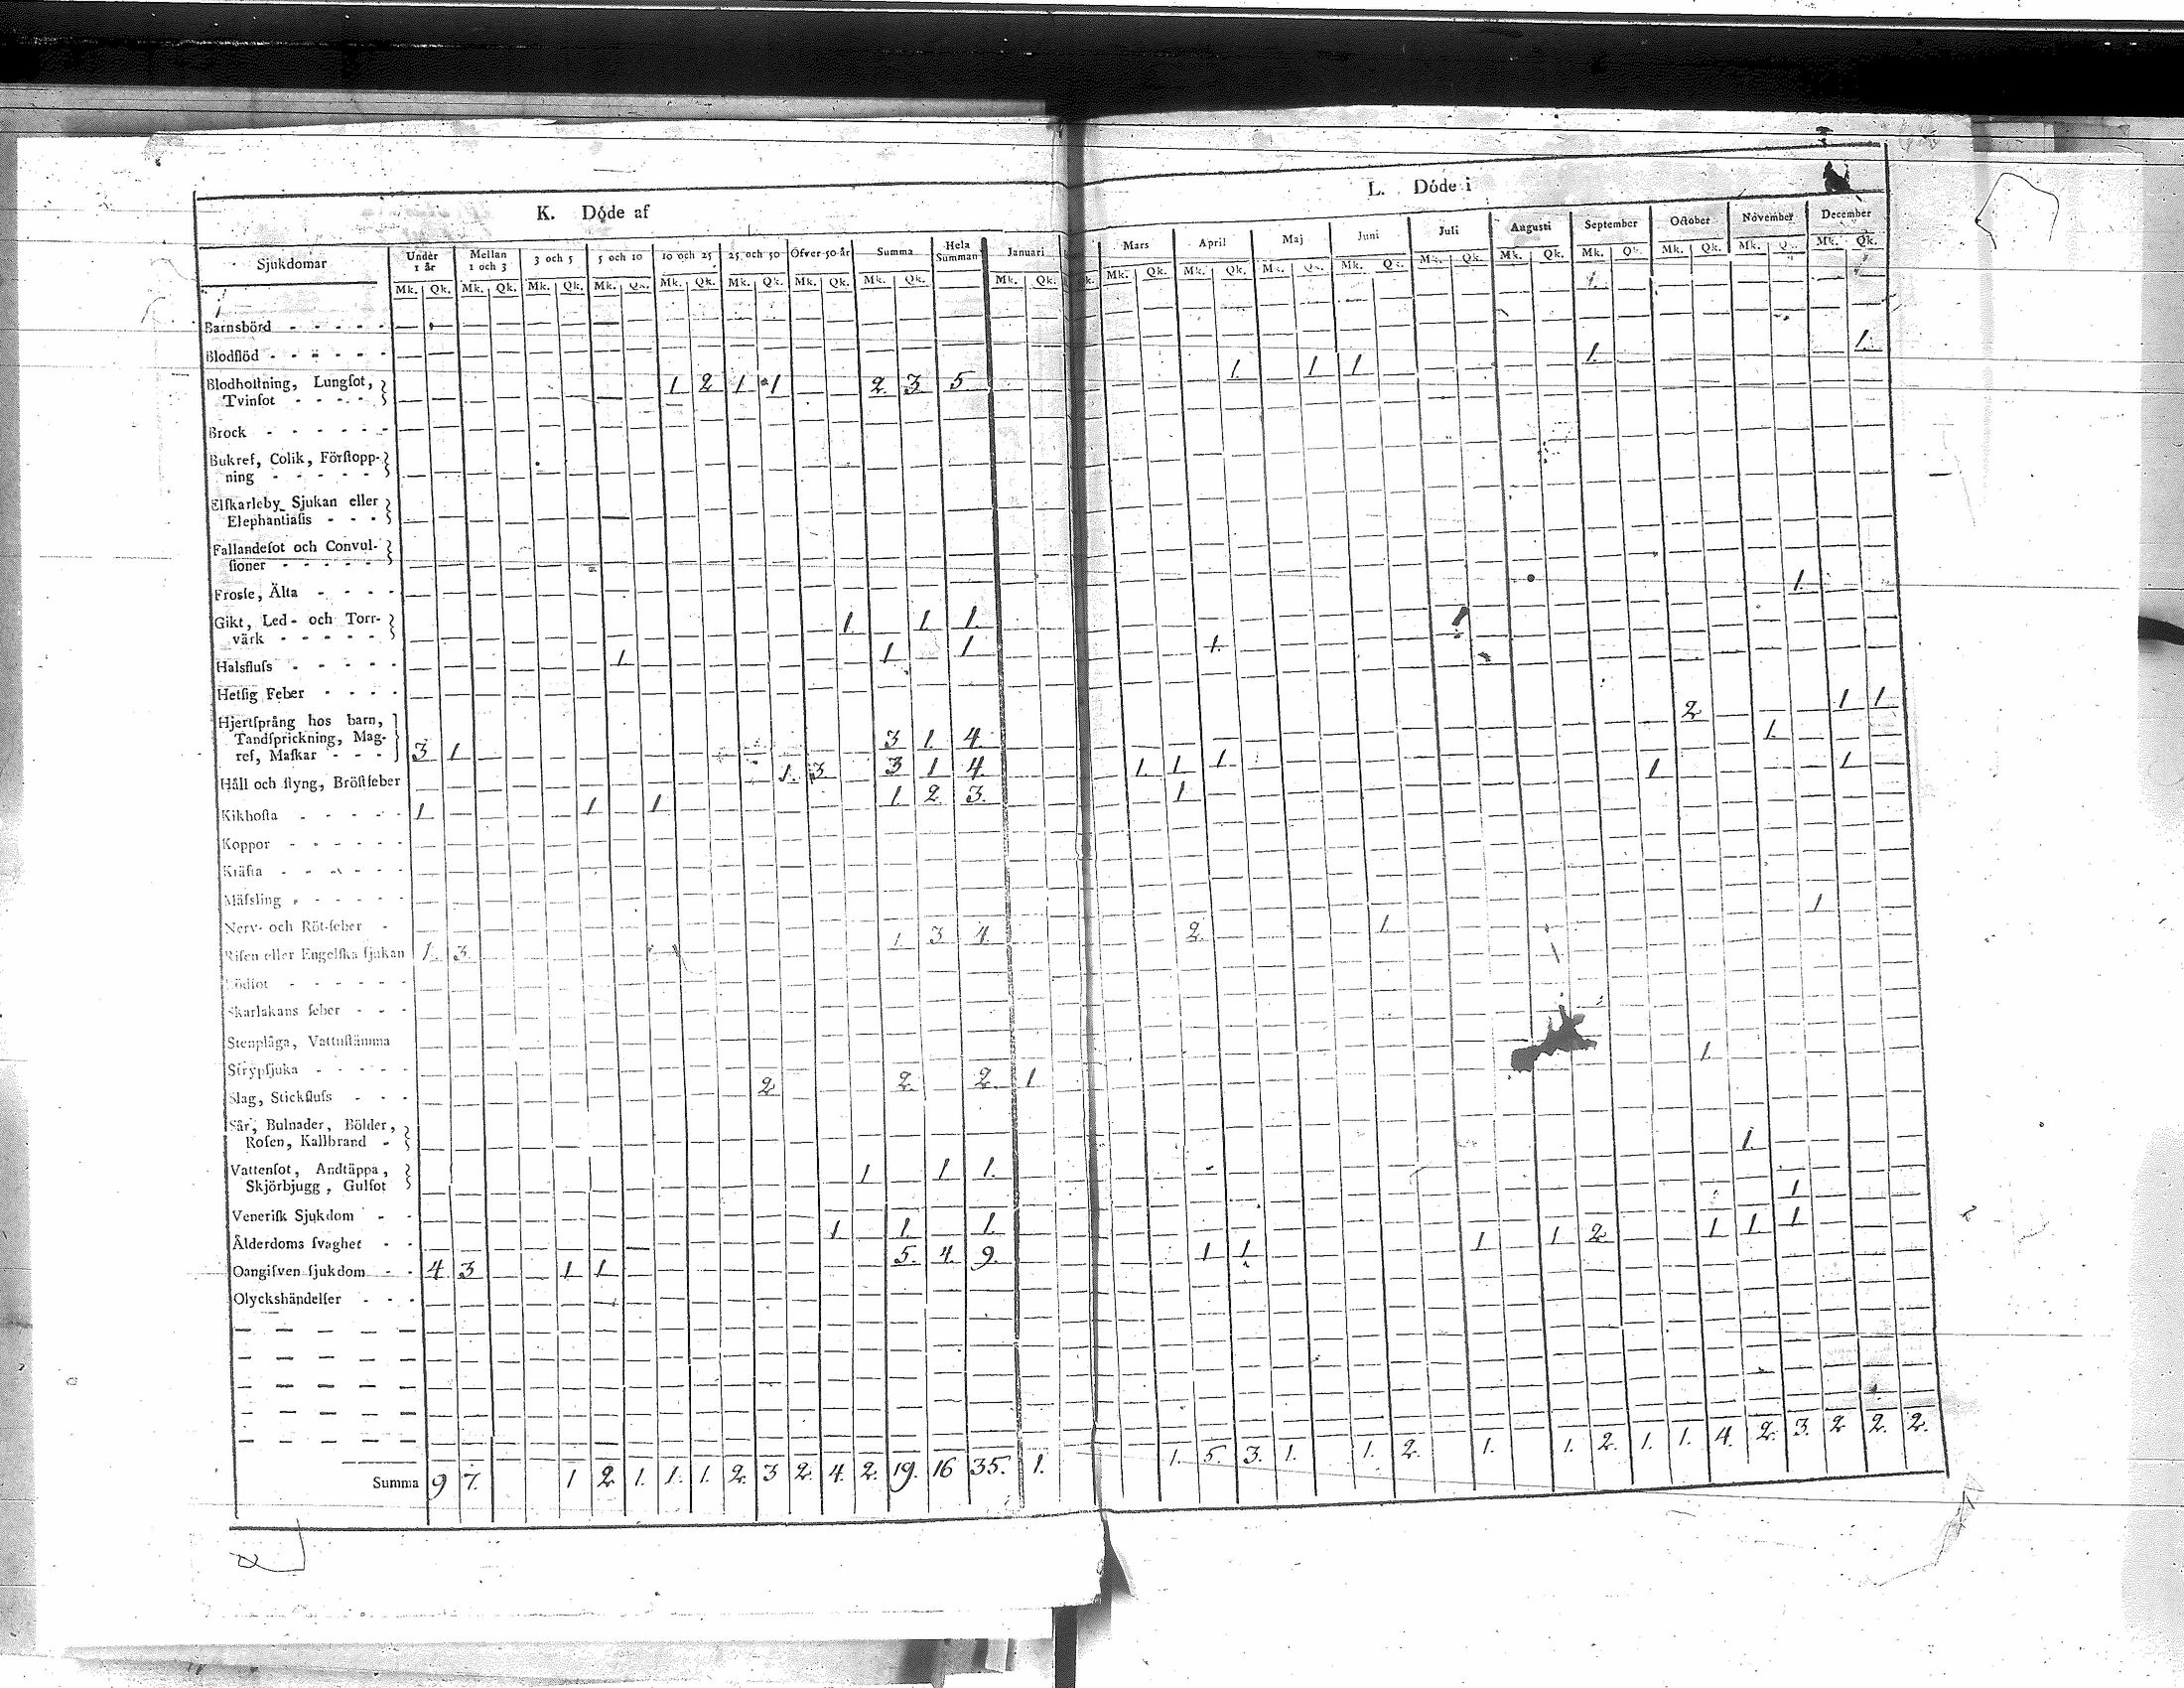 K. Döde af
L. Döde i
Sjukdomar Under 1 år Mellan 1 och 3 3 och 5 5 och 10 10 och 25 25 och 50 Öfver 50 år Summa Hela Summan Januari Mars April Maj Juni Juli Augusti September October November December
Mk. Qk. Mk. Qk. Mk. Qk. Mk. Qk. Mk. Qk. Mk. Qk. Mk. Qk. Mk. Qk. Mk. Qk. k. Mk. Qk. Mk. Qk. Mk. Qk. Mk. Qk. Mk. Qk. Mk. Qk. Mk. Qk. Mk. Qk. Mk. Qk. Mk. Qk.
Barnsbörd
Blodflöd
Blodhostning, Lungsot,
Tvinsot 1 2 1 1 2. 3 5 1. 1 1 1. 1.
Brock
Bukref, Colik, Förstopp-
ning
Elfkarleby Sjukan eller
Elephantiasis
Fallandesot och Convul-
sioner
Frossa, Älta
Gikt, Led- och Torr-
värk 1. 1. 1. 1.
Halsfluss 1 1 1 1.
Hetsig Feber
Hjertsprång hos barn,
Tandsprickning, Mag-
ref, Maskar 3 1 3 1. 4. 2. 1 1
Håll och styng, Bröstfeber 1. 3 3 1 4. 1. 1 1 1.
Kikhosta 1 1 1 1. 2. 3. 1 1 1
Koppor
Kräfta
Mässling
Nerv- och Röt-feber
Risen eller Engelska sjukan 1. 3 1. 3 4. 2. 1. 1
Rödsot
Skarlakans feber
Stenplåga, Vattustämma
Strypsjuka
Slag, Stickfluss 2 2. 2. 1 1.
Sår, Bulnader, Bölder,
Rosen, Kallbrand
Vattensot, Andtäppa,
Skjörbjugg, Gulsot 1 1 1. 1.
Venerisk Sjukdom
Ålderdoms svaghet 1. 1. 1. 1
Oangifven sjukdom 4 3 1 1 5. 4. 9. 1 1 1 1 2 1 1 1
Olyckshändelser
Summa 9 7. 1 2 1. 1. 1. 2. 3 2. 4. 2. 19. 16 35. 1. 1. 5. 3. 1. 1. 2. 1. 1. 2. 1. 1. 4. 2. 3. 2 2. 2.